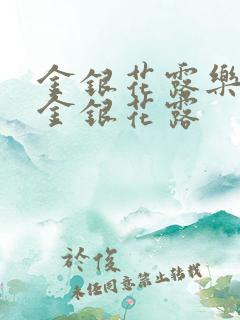 金銀花露樂
金銀花露
於俊
未经同意禁止转载